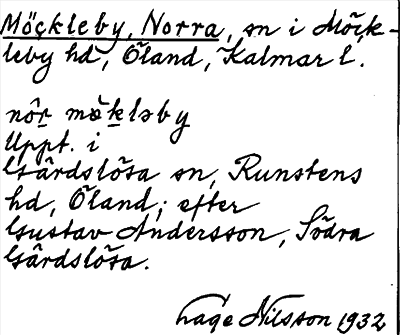 Möckleby, Norra, sn i Möck-
leby hd, Öland, Kalmar l.
nôr mökləby
Uppt. i
Gårdslösa sn, Runstens
hd, Öland; efter
Gustav Andersson, Södra
Gårdslösa.
Lage Nilsson 1932